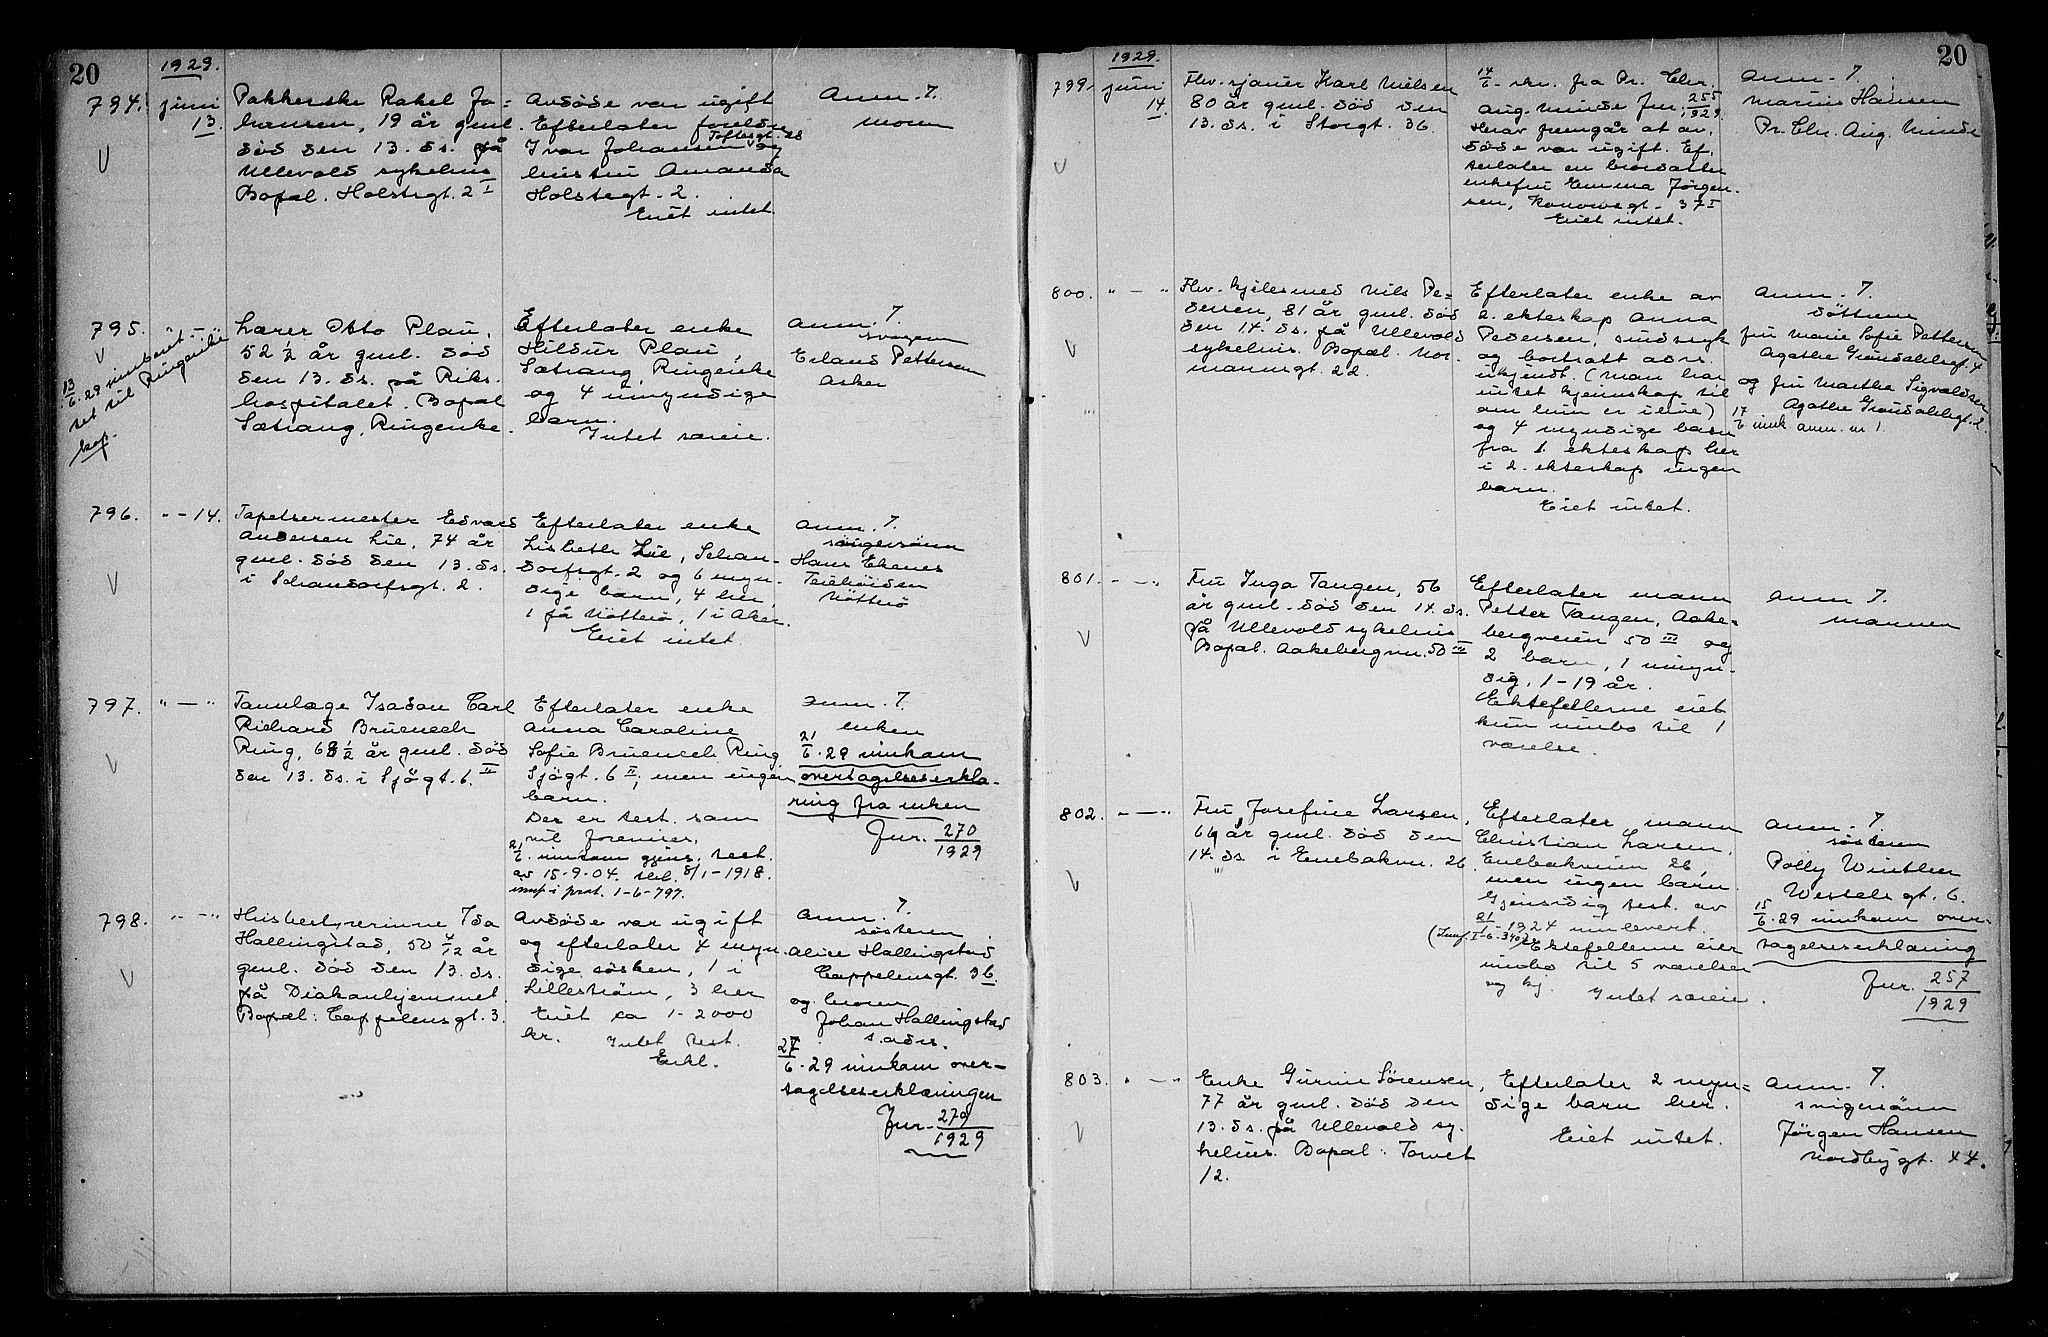 20
1929.
794.
juni
13.
Pakkerske Rakel Jo=
hansen, 19 år gml.
död den 13. ds. på
Ullevold sykehus
Bopæl. Holstsgt. 2 I
Avdöde var ugift
Efterlater foreldre
Toftesgt. 28
Ivar Johansen og
hustru Amanda
Holstsgt. 2.
Eiet intet.
Anm. 7.
moren
795.
" — "
13/6. 29 innberet-
tet til Ringerike
Lærer Otto Plau,
52 1/2 år gml. död
den 13. ds. på Riks.
hospitalet. Bopæl
Sætrang, Ringerike.
Efterlater enke
Hildur Plau,
Sætrang, Ringerike
og 4 umyndige
barn.
Intet særeie.
Anm. 7.
svogern
Erland Pettersen
Asker
796.
" - 14.
Tapetsermester Edvard
Andersen Lie, 74 år
gml. död den 13. ds.
i Schandorfsgt. 2.
Efterlater enke
Lisbeth Lie, Schan-
dorfsgt. 2 og 6 myn-
dige barn, 4 her,
1 på Nötterö, 1 i Aker.
Eiet intet.
Anm. 7.
svigersönn
Hans Ekenes
Nötterö
797.
" — "
Tannlæge Isadan Carl
Richard Bruenech
Ring, 68 1/2 år gml. död
den 13. ds. i Sjögt. 6. II
Efterlater enke
Anna Caroline
Sofie Bruenech Ring
Sjögt. 6 II, men ingen
barn.
Der er test. som
vil forevises.
21/6. innkom gjens. test.
av 15-9-04. tbl. 8/1-1918.
innf i prot. 1-6-797.
Anm. 7.
enken
21/6. 29 innkom
overtagelseserklæ-
ring fra enken
Jnr. 270/1929
798.
" — "
Husbestyrerinne Ida
Hallingstad, 50 4/12 år
gml. död den 13. ds.
på Diakonhjemmet.
Bopæl: Cappelensgt. 3.
Avdöde var ugift
og efterlater 4 myn.
dige sösken, 1 i
Lilleström, 3 her
Eiet ca 1-2000
kr. Intet test.
Erkl.
Anm. 7.
sösteren
Alice Hallingstad
Cappelensgt. 3 b.
og broren
Johan Hallingstad
s. adr.
27/6. 29 innkom over-
tagelseserklæringen
Jnr. 279/1929
20
1929.
799.
juni
14.
Fhv. sjauer Karl Nielsen
80 år gml. död den
13. ds. i Storgt. 36.
14/6. skr. fra Pr. Chr.
Aug. Minde Jnr. 255/1929.
Herav fremgår at av.
döde var ugift. Ef.
terlater en brordatter
enkefru Emma Jörgen.
sen, 37 I
Eiet intet.
Anm. 7.
Marius Hansen
Pr. Chr. Aug. Minde
800.
" — "
Fhv. kjelesmed Nils Pe=
dersen, 81 år gml. död
den 14. ds. på Ullevold
sykehus. Bopæl. Nor.
mannsgt. 22.
Efterlater enke av
2. ekteskap Anna
Pedersen, sindssyk
og bortsatt adr.
ukjendt. (Man har
intet kjennskap til
om hun er ilive)
og 4 myndige barn
fra 1. ekteskap her
i 2. ekteskap ingen
barn.
Eiet intet.
Anm. 7.
döttrene
fru Marie Sofie Pettersen
Agathe Gröndahlsgt. 4
og fru Marthe Sigvaldsen
Agathe Gröndahlsgt. 2.
17/6 innk. anm. nr 1.
801.
" — "
Fru Inga Tangen, 56
år gml. död den 14. ds.
på Ullevold sykehus
Bopæl. Aakebergvn. 50 III
Efterlater mann
Petter Tangen, Aake=
bergveien 50 III og
2 barn, 1 umyn-
dig, 1 - 19 år.
Ektefellerne eiet
kun innbo til 1
værelse.
Anm 7.
mannen
802.
" — "
Fru Josefine Larsen,
66 år gml. död den
14. ds. i Enebakvn. 26.
Efterlater mann
Christian Larsen,
Enebakveien 26,
men ingen barn.
Gjensidig test. av
21/1-1924 innlevert.
(Innf. I-6-340)
Ektefellerne eier
innbo til 5 værelser
og kj. Intet særeie.
Anm. 7
sösteren
Polly Winther
Wessels gt. 6.
15/6. 29 innkom over-
tagelseserklæring
Jnr. 257/1929
803.
" — "
Enke Gurine Sörensen,
77 år gml. död den
13. ds. på Ullevold sy.
kehus. Bopæl: Torvet
12.
Efterlater 2 myn=
dige barn her.
Eiet intet.
Anm. 7.
svigersönn
Jörgen Hansen
Nordbygt. 44.